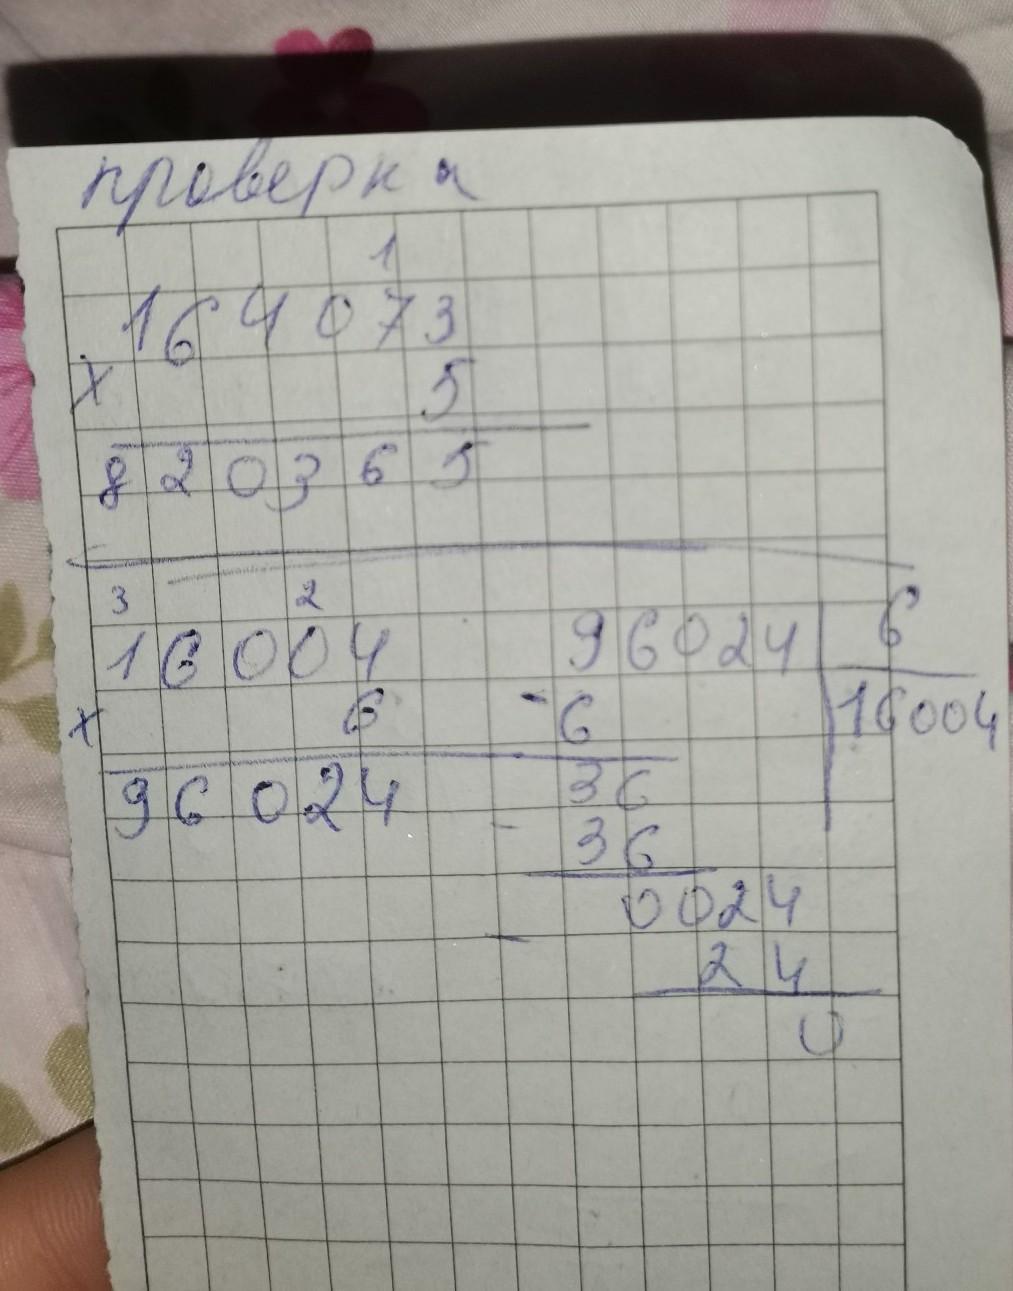 проверка
1
164073
х 5
820365
3 2
16004
х 6
96024
96024 6
- 6 16004
36
- 36
0024
- 24
0